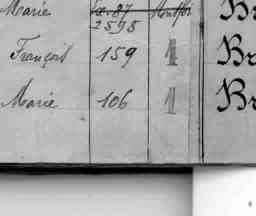 Marie
2595
François 159 1 Br
Marie 106 1 Br